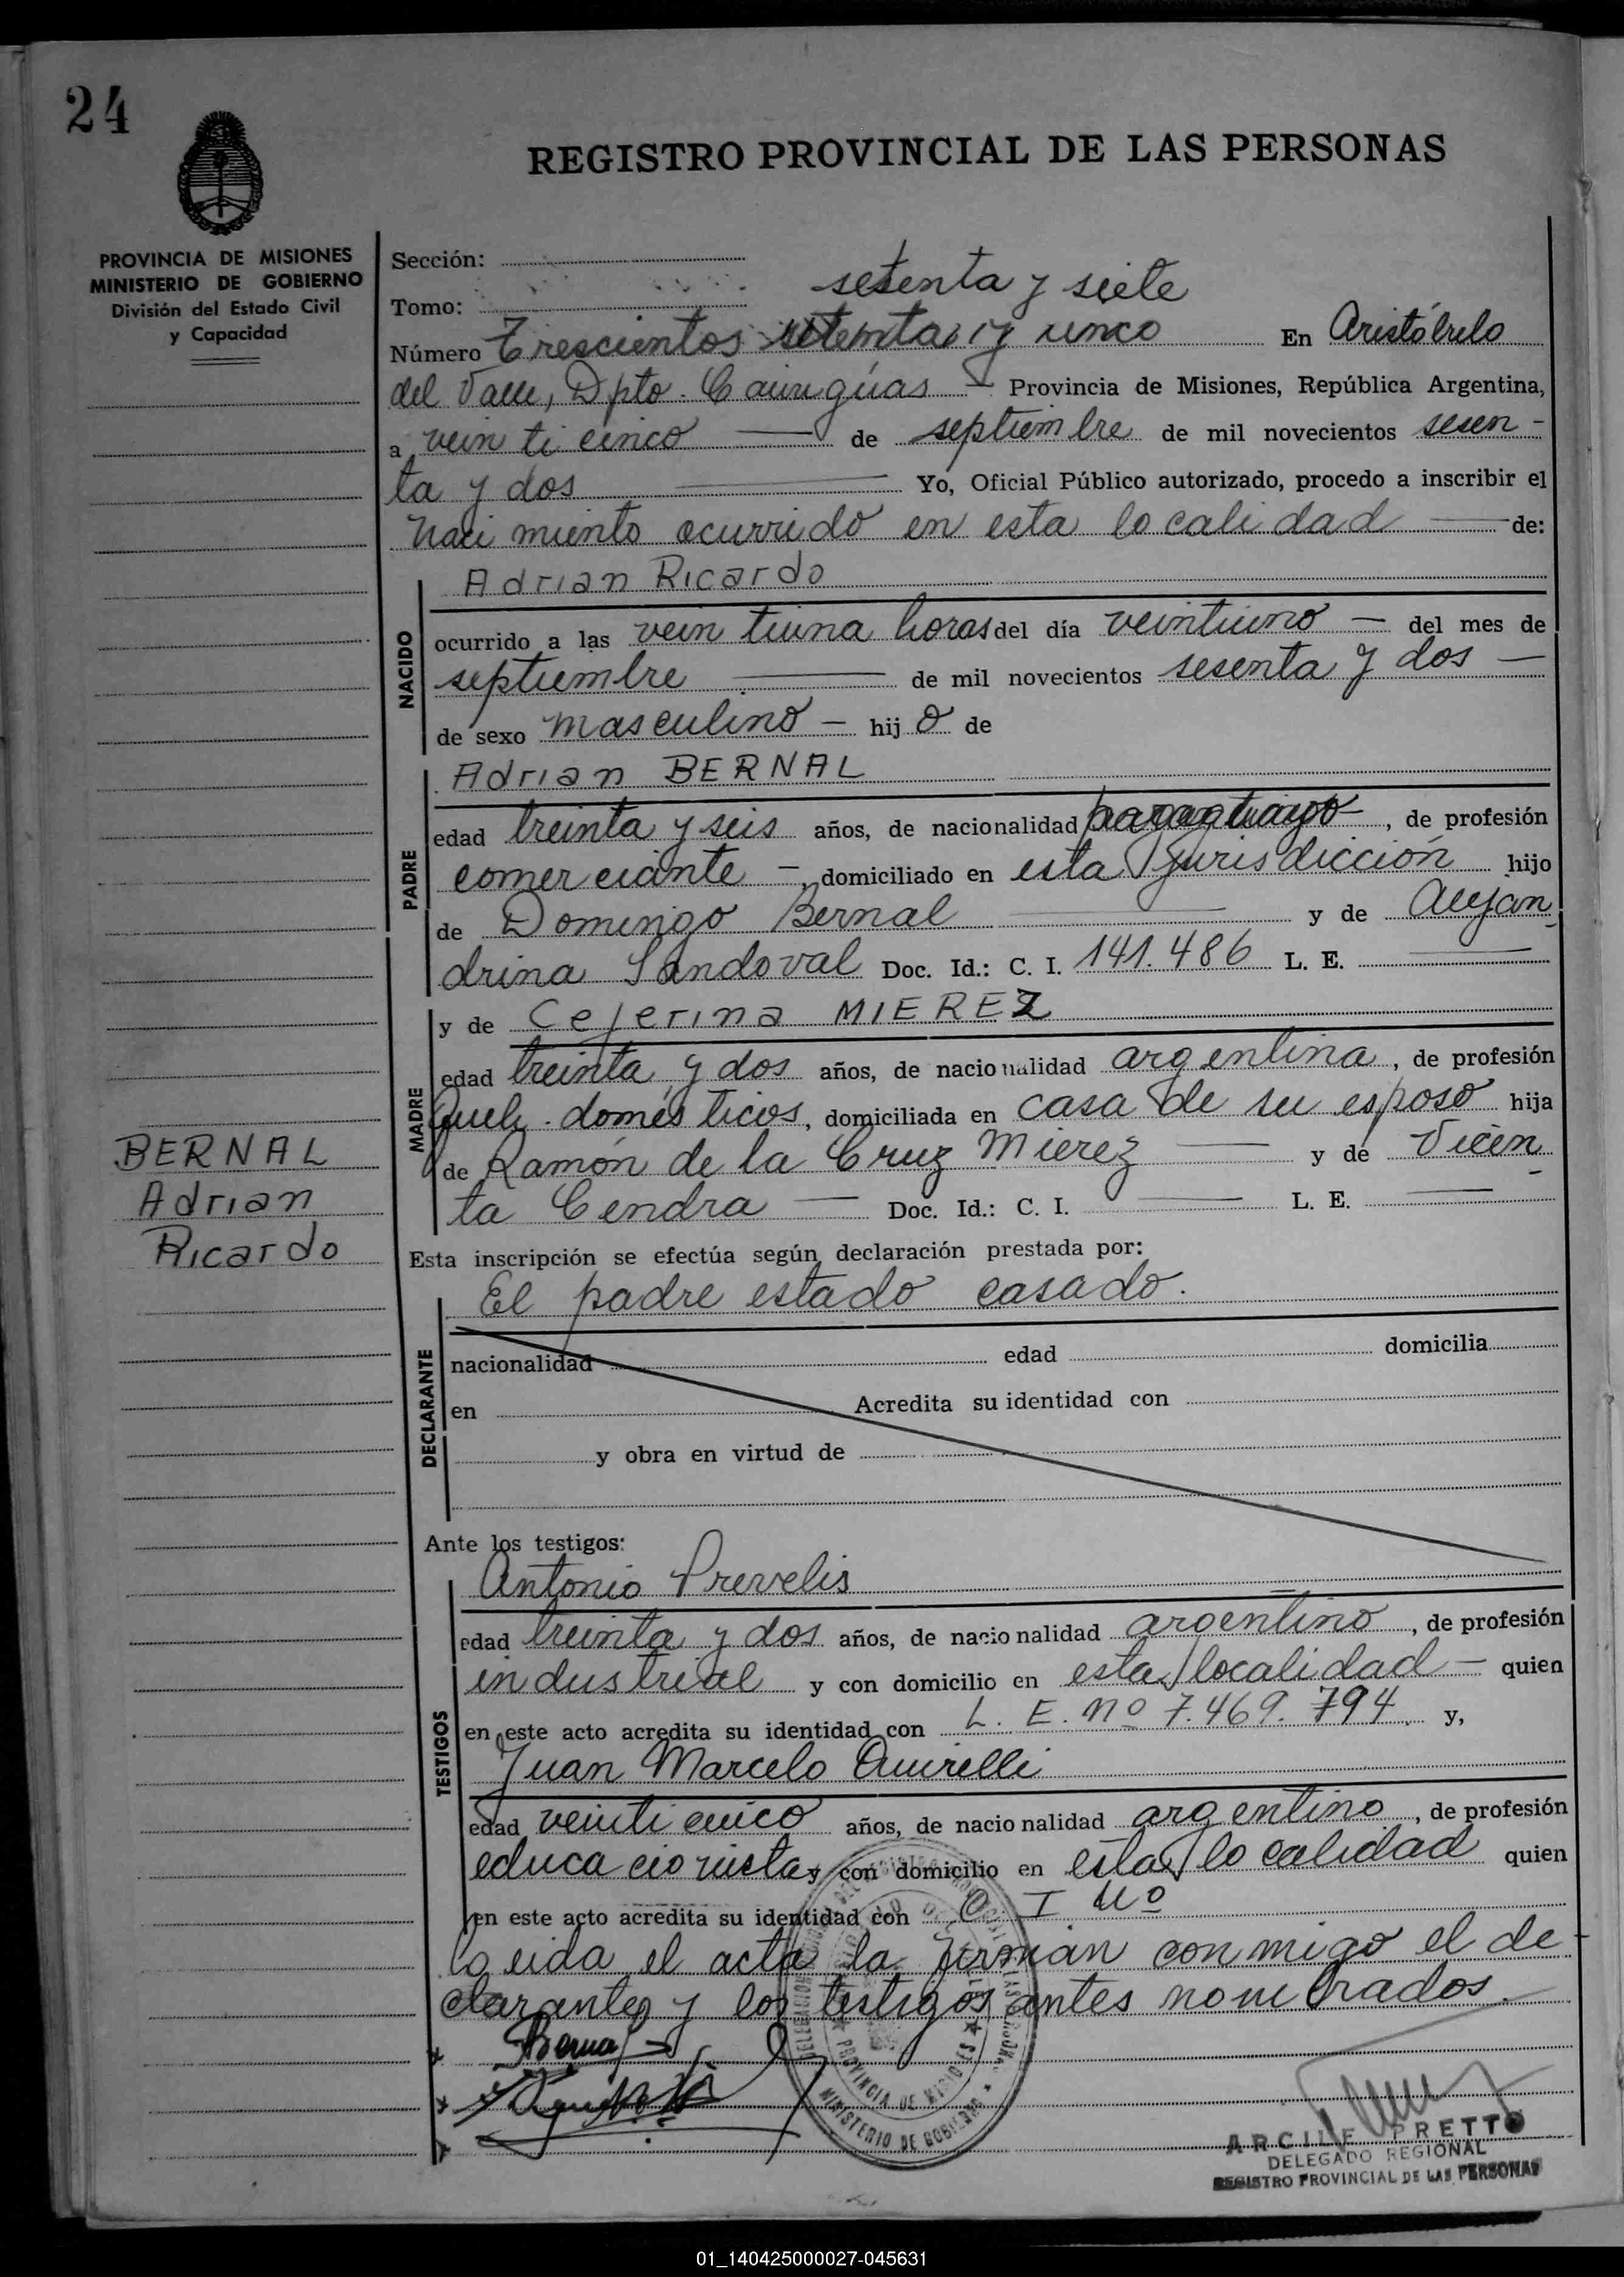 24
REGISTRO PROVINCIAL DE LAS PERSONAS
PROVINCIA DE MISIONES
MINISTERIO DE GOBIERNO
División del Estado Civil
y Capacidad
Sección:
Tomo:
setenta y siete
Número Trescientos setenta y cinco En Aristóbulo
del Valle, Dpto. Cainguas - Provincia de Misiones, República Argentina,
a veinticinco de septiembre de mil novecientos sesen-
ta y dos Yo, Oficial Público autorizado, procedo a inscribir el
nacimiento ocurrido en esta localidad de:
NACIDO
Adrian Ricardo
ocurrido a las veintiuna horas del día veintiuno - del mes de
septiembre de mil novecientos sesenta y dos -
de sexo masculino - hijo de
PADRE
Adrian BERNAL
edad treinta y seis años, de nacionalidad , de profesión
comerciante -, domiciliado en esta jurisdicción hijo
de Domingo Bernal y de Alejan
drina Sandoval Doc. Id.: C. I. 141.486 L. E.
MADRE
y de Ceferina MIEREZ
edad treinta y dos años, de nacionalidad argentina, de profesión
queh. domésticos, domiciliada en casa de su esposo hija
de Ramón de la Cruz Mierez y de Vicen
ta Cendra - Doc. Id.: C. I. L. E.
BERNAL
Adrian
Ricardo
Esta inscripción se efectúa según declaración prestada por:
DECLARANTE
El padre estado casado.
nacionalidad edad domicilia
en Acredita su identidad con
y obra en virtud de
Ante los testigos:
TESTIGOS
Antonio Prevelis
edad treinta y dos años, de nacionalidad argentino, de profesión
industrial y con domicilio en esta localidad - quien
en este acto acredita su identidad con L. E. Nº 7.469.794 y,
Juan Marcelo
edad veinticinco años, de nacionalidad argentino, de profesión
educacionista y con domicilio en esta localidad quien
en este acto acredita su identidad con C I Nº
Leida el acta la firman conmigo el de-
clarante y los testigos antes nombrados.
Bernal
PROVINCIA DE MISIONES
MINISTERIO DE GOBIERNO
ARCILE PRETTO
DELEGADO REGIONAL
REGISTRO PROVINCIAL DE LAS PERSONAS
01_140425000027-045631